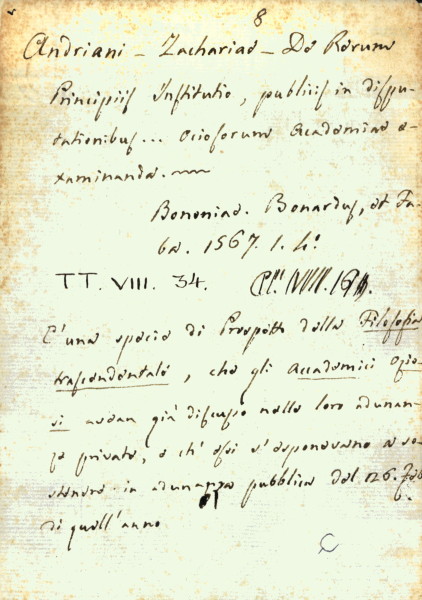 8
Andriani - Zachariae - De Rerum
Principiis Institutio, publicis in dispu-
tationibus... Ociosorum Academiae e-
xaminanda.
Bononiae. Bonardus, et Fa-
ba. 1567. 1. 4.º
TT. VIII. 34.
E' una specie di Prospetto della Filosofia
trascendentale, che gli Accademici Ozio-
si avean già discusso nelle loro adunan-
ze private, e ch' essi s' esponevano a so-
stenere in adunanza pubblica del 126. Feb
di quell' anno